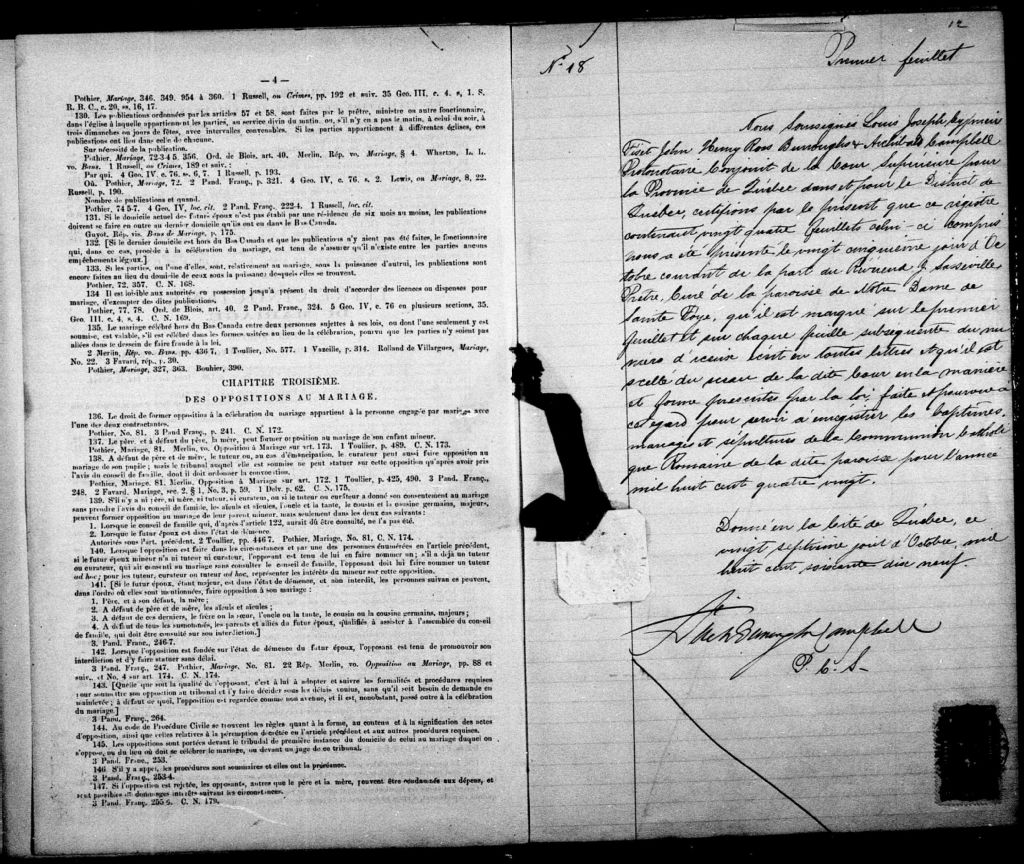 — 4 —
Pothier, Mariage, 346, 349, 954 à 360. 1 Russell, on Crimes, pp. 192 et suiv. 35 Geo. III, c. 4, s, 1. S.
R. B. C., c. 20, ss. 16, 17.
130. Les publications ordonnées par les articles 57 et 58, sont faites par le prêtre, ministre ou autre fonctionnaire,
dans l'église à laquelle appartiennent les parties, au service divin du matin, ou, s'il n'y en a pas le matin, à celui du soir, à
trois dimanches ou jours de fêtes, avec intervalles convenables. Si les parties appartiennent à différentes églises, ces
publications ont lieu dans celle de chacune.
Sur nécessité de la publication.
Pothier, Mariage, 72-3 4 5, 356. Ord. de Blois, art. 40. Merlin, Rép. vo. Mariage, § 4. Wharton, L. L.
vo. Bans. 1 Russell, on Crimes, 189 et suiv. :
Par qui. 4 Geo. IV, c. 76, ss. 6, 7. 1 Russell, p. 193.
Où. Pothier, Mariage, 72. 2 Pand. Franç., p. 321. 4 Geo. IV, c. 76, s. 2. Lewis, on Mariage, 8, 22.
Russell, p. 190.
Nombre de publications et quand.
Pothier, 74 5-7. 4 Geo. IV, loc. cit. 2 Pand. Franç., 222-4. 1 Russell, loc. cit.
131. Si le domicile actuel des futurs époux n'est pas établi par une résidence de six mois au moins, les publications
doivent se faire en outre au dernier domicile qu'ils ont eu dans le Bas Canada.
Guyot, Rép. vis. Bans de Mariage, p. 175.
132. [Si le dernier domicile est hors du Bas Canada et que les publications n'y aient pas été faites, le fonctionnaire
qui, dans ce cas, procède à la célébration du mariage, est tenu de s'assurer qu'il n'existe entre les parties aucuns
empêchements légaux.]
133. Si les parties, ou l'une d'elles, sont, relativement au mariage, sous la puissance d'autrui, les publications sont
encore faites au lieu du domicile de ceux sous la puissance desquels elles se trouvent.
Pothier, 72, 357. C. N. 168.
134. Il est loisible aux autorités en possession jusqu'à présent du droit d'accorder des licences ou dispenses pour
mariage, d'exempter des dites publications.
Pothier, 77, 78. Ord. de Blois, art. 40. 2 Pand. Franç., 324. 5 Geo. IV, c. 76 en plusieurs sections, 35.
Geo. III. c. 4, s. 4. C. N. 169.
135. Le mariage célébré hors du Bas Canada entre deux personnes sujettes à ses lois, ou dont l'une seulement y est
soumise, est valable, s'il est célébré dans les formes usitées au lieu de la célébration, pourvu que les parties n'y soient pas
allées dans le dessein de faire fraude à la loi.
2 Merlin, Rép. vo. Bans, pp. 436 7. 1 Toullier, No. 577. 1 Vazeille, p. 314. Rolland de Villargues, Mariage,
No. 22. 3 Favard, rép., p. 30.
Pothier, Mariage, 327, 363. Bouhier, 390.
CHAPITRE TROISIÈME.
DES OPPOSITIONS AU MARIAGE.
136. Le droit de former opposition à la célébration du mariage appartient à la personne engagée par mariage avec
l'une des deux contractantes.
Pothier, No. 81. 3 Pand Franç., p. 241. C. N. 172.
137. Le père, et à défaut du père, la mère, peut former opposition au mariage de son enfant mineur.
Pothier, Mariage, 81. Merlin, vo. Opposition à Mariage sur art. 173. 1 Toullier, p. 489. C. N. 173.
138. A défaut de père et de mère, le tuteur ou, au cas d'émancipation, le curateur peut aussi faire opposition au
mariage de son pupile ; mais le tribunal auquel elle est soumise ne peut statuer sur cette opposition qu'après avoir pris
l'avis du conseil de famille, dont il doit ordonner la convocation.
Pothier, Mariage, 81. Merlin, Opposition à Mariage sur art. 172. 1 Toullier, p. 425, 490. 3 Pand. Franç.,
248. 2 Favard, Mariage, sec. 2, § 1, No. 3, p. 59. 1 Delv. p. 62. C. N. 175.
139. S'il n'y a ni père, ni mère, ni tuteur, ni curateur, ou si le tuteur ou curateur a donné son consentement au mariage
sans prendre l'avis du conseil de famille, les aïeuls et aïeules, l'oncle et la tante, le cousin et la cousine germains, majeurs,
peuvent former opposition au mariage de leur parent mineur, mais seulement dans les deux cas suivants :
1. Lorsque le conseil de famille qui, d'après l'article 122, aurait dû être consulté, ne l'a pas été.
2. Lorsque le futur époux est dans l'état de démence.
Autorités sous l'art. précédent. 2 Toullier, pp. 446 7. Pothier, Mariage, No. 81, C. N. 174.
140. Lorsque l'opposition est faite dans les circonstances et par une des personnes énumérées en l'article précédent,
si le futur époux mineur n'a ni tuteur ni curateur, l'opposant est tenu de lui en faire nommer un ; s'il a déjà un tuteur
ou curateur, qui ait consenti au mariage sans consulter le conseil de famille, l'opposant doit lui faire nommer un tuteur
ad hoc ; pour les tuteur, curateur ou tuteur ad hoc, représenter les intérêts du mineur sur cette opposition.
141. [Si le futur époux, étant majeur, est dans l'état de démence, et non interdit, les personnes suivantes peuvent,
dans l'ordre où elles sont mentionnées, faire opposition à son mariage :
1. Père, et à son défaut, la mère ;
2. A défaut de père et de mère, les aïeuls et aïeules ;
3. A défaut de ces derniers, le frère ou la sœur, l'oncle ou la tante, le cousin ou la cousine germains, majeurs ;
4. A défaut de tous les susnommés, les parents et alliés du futur époux, qualifiés à assister à l'assemblée du conseil
de famille, qui doit être consulté sur son interdiction.]
3. Pand. Franç., 246-7.
142. Lorsque l'opposition est fondée sur l'état de démence du futur époux, l'opposant est tenu de promouvoir son
interdiction et d'y faire statuer sans délai.
3 Pand. Franç., 247. Pothier, Mariage, No. 81. 22 Rép. Merlin, vo. Opposition au Mariage, pp. 88 et
suiv., et No. 4 sur art. 174. C. N. 174.
143. [Quelle que soit la qualité de l'opposant, c'est à lui à adopter et suivre les formalités et procédures requises
pour soumettre son opposition au tribunal et l'y faire décider sous les délais voulus, sans qu'il soit besoin de demande en
mainlevée ; à défaut de quoi, l'opposition est regardée comme non avenue, et il est, nonobstant, passé outre à la célébration
du mariage.]
3 Pand. Franç., 264.
144. Au code de Procédure Civile se trouvent les règles quant à la forme, au contenu et à la signification des actes
d'opposition, ainsi que celles relatives à la péremption décrétée en l'article précédent et aux autres procédures requises.
145. Les oppositions sont portées devant le tribunal de première instance du domicile de celui au mariage duquel on
s'oppose, ou du lieu où doit se célébrer le mariage, ou devant un juge de ce tribunal.
3 Pand. Franc., 253.
146. S'il y a appel, les procédures sont sommaires et elles ont la préséance.
3. Pand. Franç., 253-4.
147. Si l'opposition est rejetée, les opposants, autres que le père et la mère, peuvent être condamnés aux dépens, et
sont passibles de dommages intérêts suivant les circonstances.
3 Pand. Franç. 255 6. C. N. 179.
No 18
12
Premier feuillet
Nous Soussignés Louis Joseph Cyprien
Fiset, John Henry Ross Burroughs & Archibald Campbell
Protonotaire Conjoint de la Cour Supérieure pour
la Province de Québec dans et pour le District de
Québec, certifions par le présent que ce registre
contenant vingt quatre feuillets celui-ci compris
nous a été présenté le vingt cinquième jour d'Oc
tobre courant de la part du Révérend J. Sasseville
Prêtre, Curé de la paroisse de Notre Dame de
Sainte Foye, qu'il est marqué sur le premier
feuillet et sur chaque feuille subséquente du nu
méro d'iceux écrit en toutes lettres et qu'il est
scellé du sceau de la dite Cour en la manière
et forme prescrites par la loi faite et pourvue à
cet egard pour servir à enregistrer les baptêmes
mariages et sépultures de la Communion Catholi
que Romaine de la dite paroisse pour l'année
mil huit cent quatre vingt.
Donné en la Cité de Québec, ce
vingt septième jour d'Octobre, mil
huit cent soixante dix neuf.
Campbell
P. C. S.